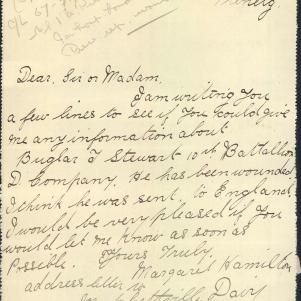 Dear, Sir or Madam.
I am writing you
a few lines to see if you could give
me any information about
Buglar T Stewart 10th Battallion
D Company. He has been wounded
I think he was sent. to England
I would be very pleased if you
would let me know as soon as
Possible. Yours Truly
Margaret Hamilton
address letter to
Davy